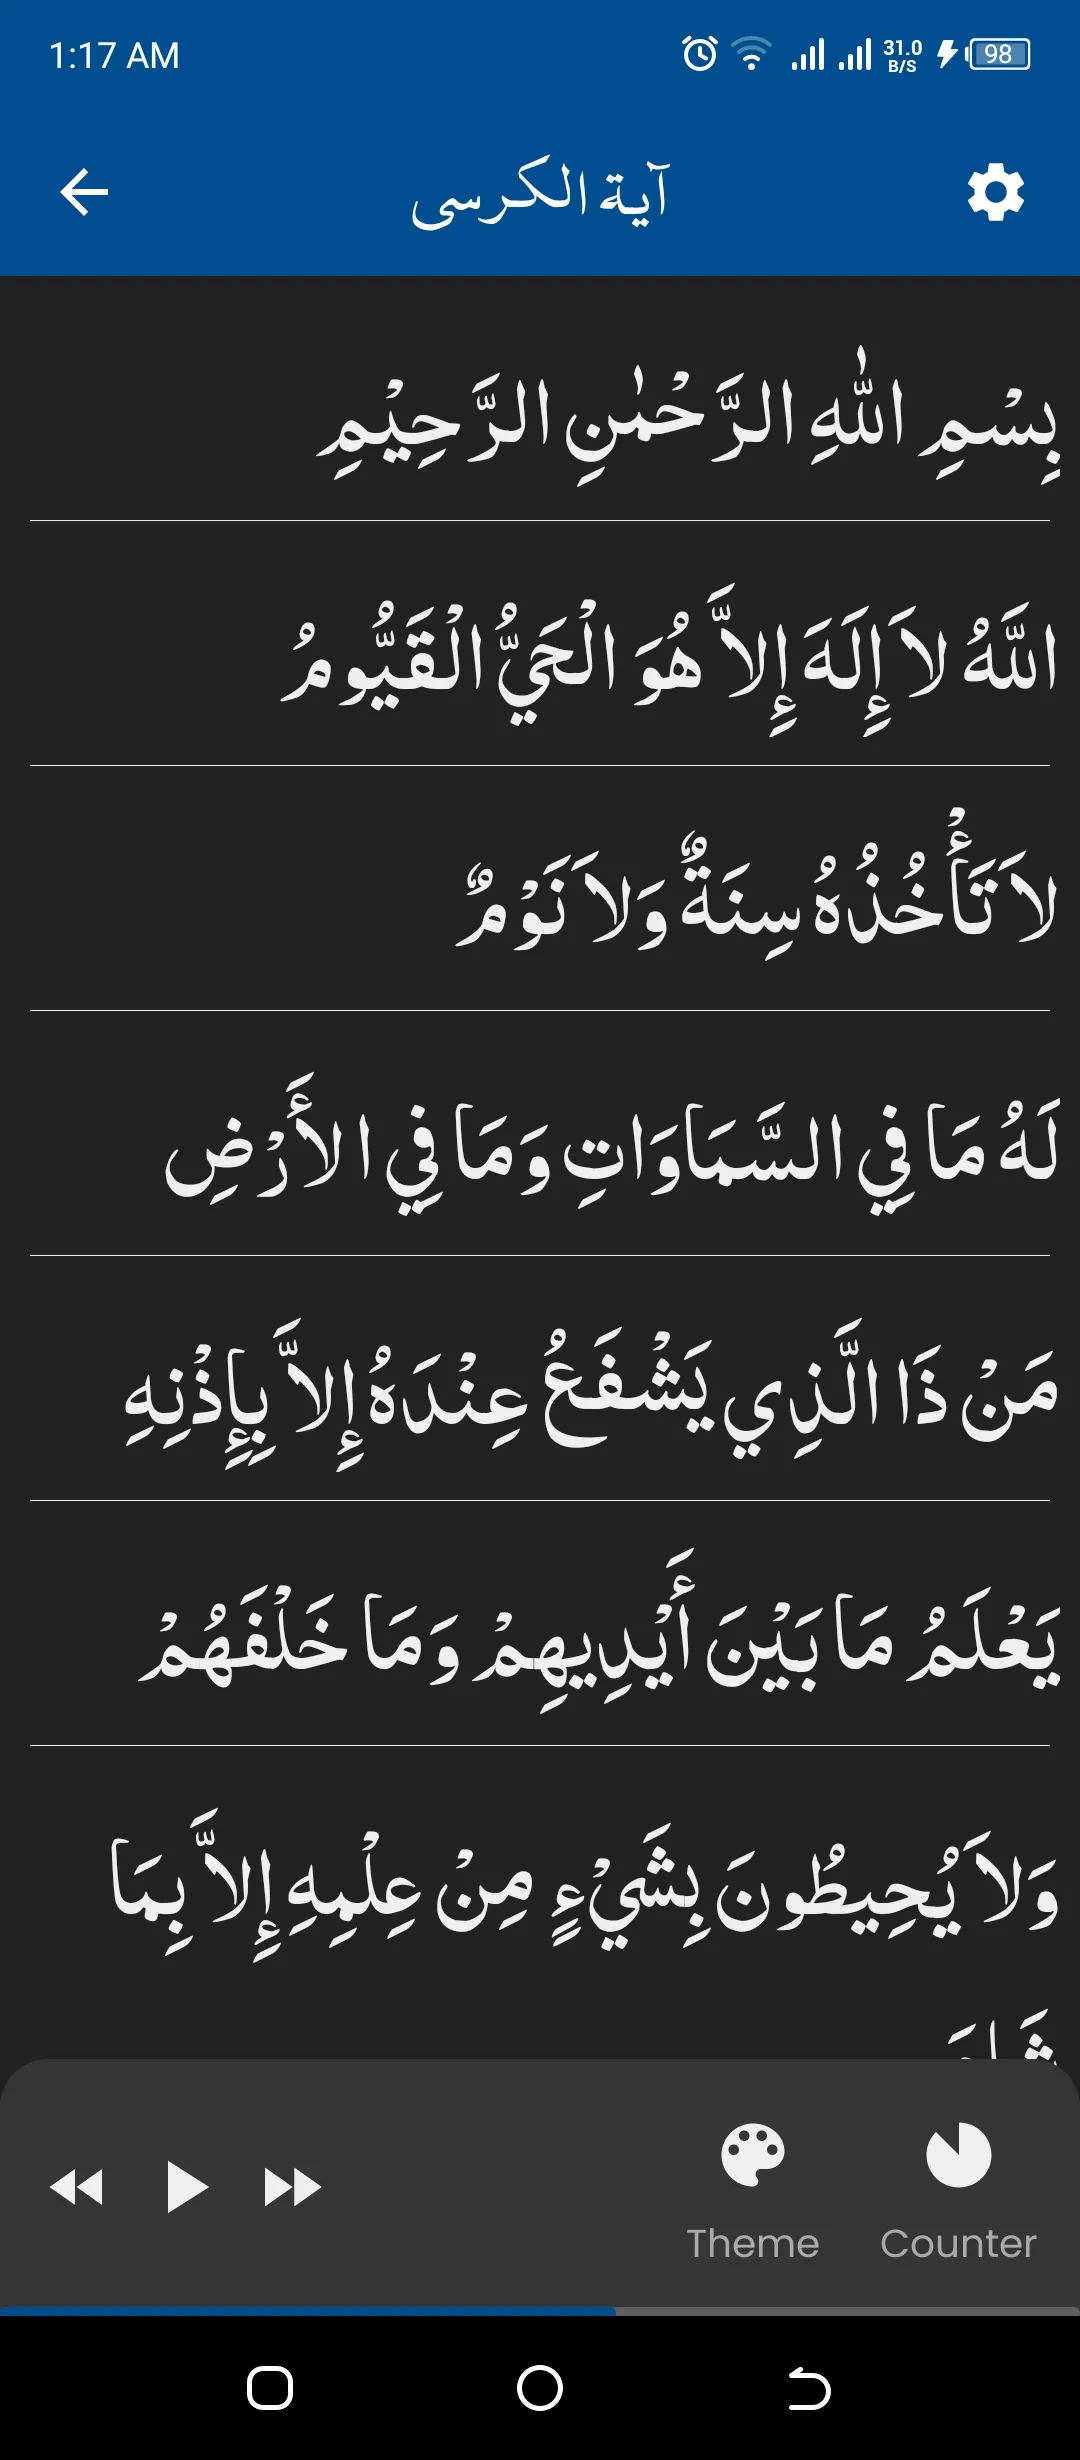 1:17 AM
31.0
B/S
98
آية الكرسى
بِسْمِ اللّٰهِ الرَّحْمٰنِ الرَّحِيْمِ
اللَّهُ لاَ إِلَهَ إِلاَّ هُوَ الْحَيُّ الْقَيُّومُ
لاَ تَأْخُذُهُ سِنَةٌ وَلاَ نَوْمٌ
لَهُ مَا فِي السَّمَاوَاتِ وَمَا فِي الأَرْضِ
مَنْ ذَا الَّذِي يَشْفَعُ عِنْدَهُ إِلاَّ بِإِذْنِهِ
يَعْلَمُ مَا بَيْنَ أَيْدِيهِمْ وَمَا خَلْفَهُمْ
وَلاَ يُحِيطُونَ بِشَيْءٍ مِنْ عِلْمِهِ إِلاَّ بِمَا
Theme
Counter